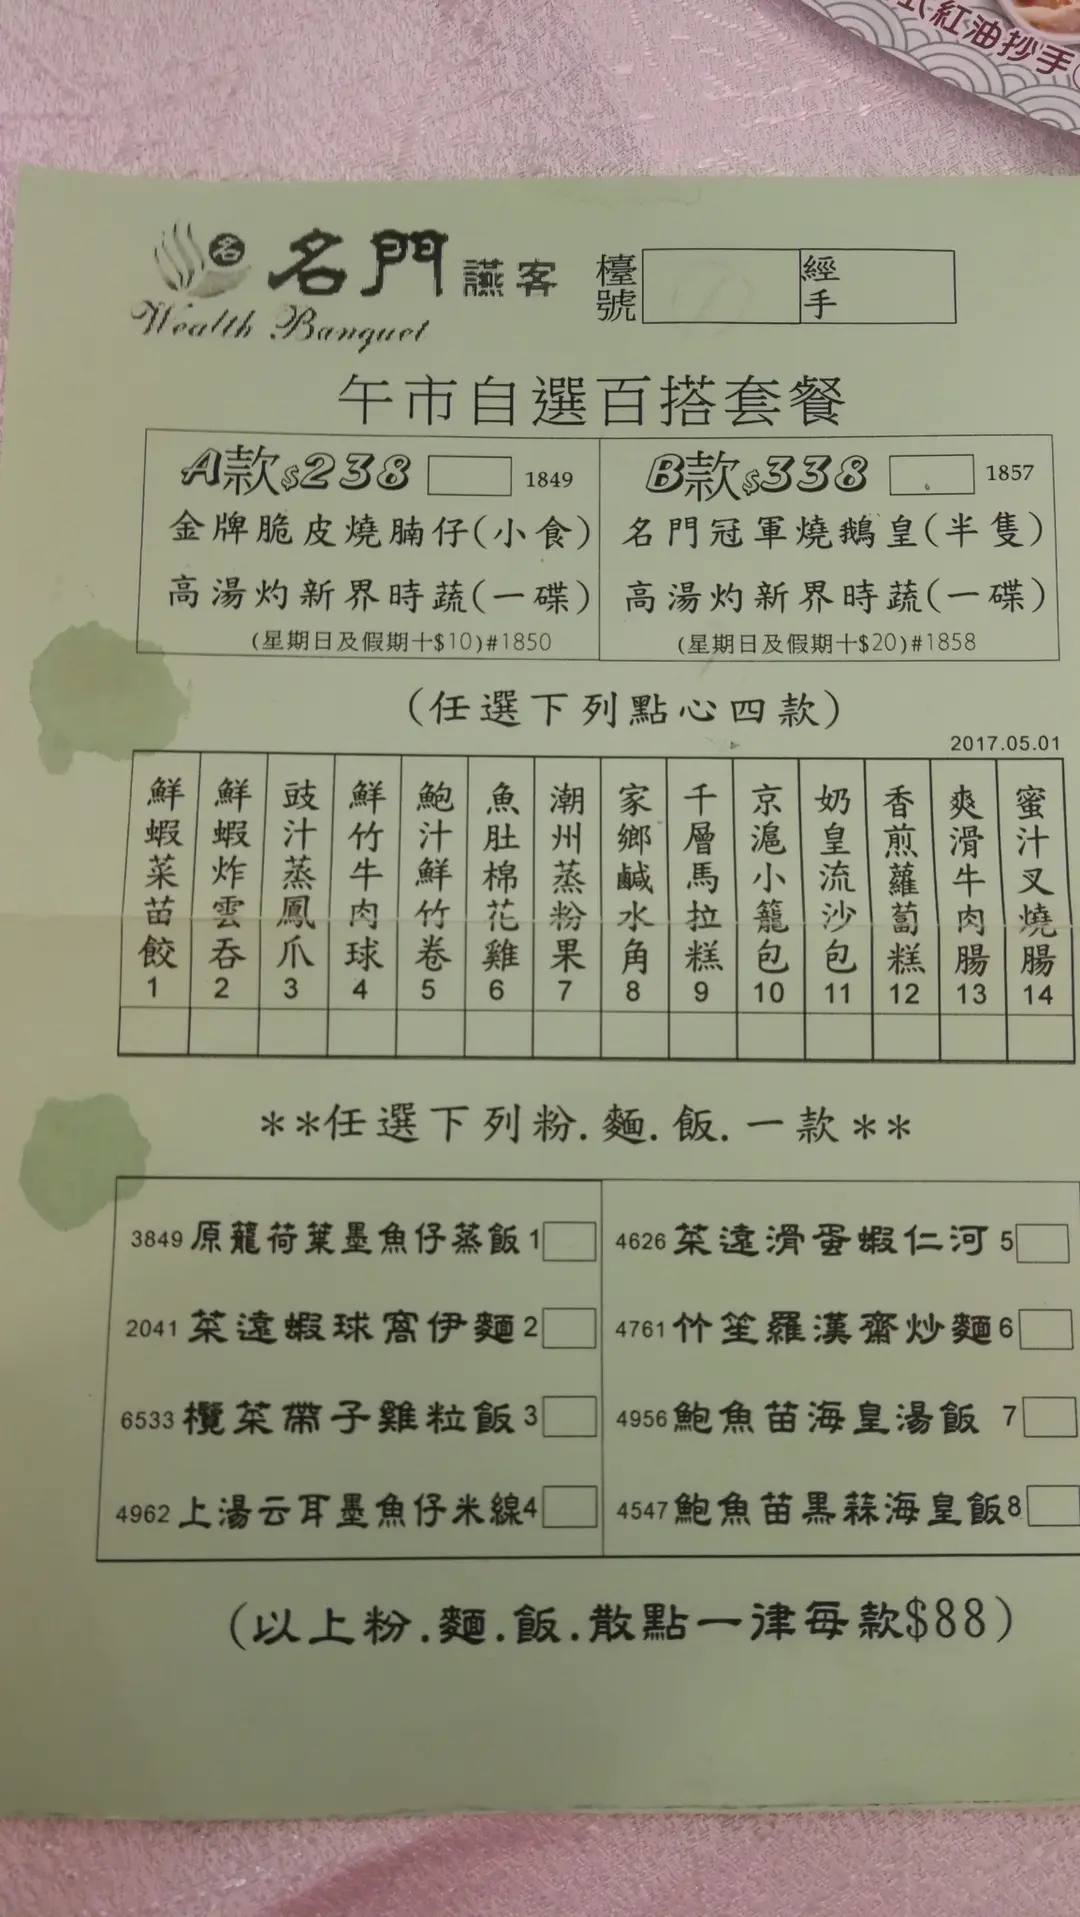 紅油抄手
名 名門讌客
Wealth Banquet
檯號
經手
午市自選百搭套餐
A款$238 1849
金牌脆皮燒腩仔(小食)
高湯灼新界時蔬(一碟)
(星期日及假期十$10)#1850
B款$338 1857
名門冠軍燒鵝皇(半隻)
高湯灼新界時蔬(一碟)
(星期日及假期十$20)#1858
(任選下列點心四款)
2017.05.01
鮮蝦菜苗餃 1
鮮蝦炸雲吞 2
豉汁蒸鳳爪 3
鮮竹牛肉球 4
鮑汁鮮竹卷 5
魚肚棉花雞 6
潮州蒸粉果 7
家鄉鹹水角 8
千層馬拉糕 9
京滬小籠包 10
奶皇流沙包 11
香煎蘿蔔糕 12
爽滑牛肉腸 13
蜜汁叉燒腸 14
**任選下列粉.麵.飯.一款**
3849 原籠荷葉墨魚仔蒸飯 1
2041 菜遠蝦球窩伊麵 2
6533 欖菜帶子雞粒飯 3
4962 上湯云耳墨魚仔米線 4
4626 菜遠滑蛋蝦仁河 5
4761 竹笙羅漢齋炒麵 6
4956 鮑魚苗海皇湯飯 7
4547 鮑魚苗黑蒜海皇飯 8
(以上粉.麵.飯.散點一律每款$88)